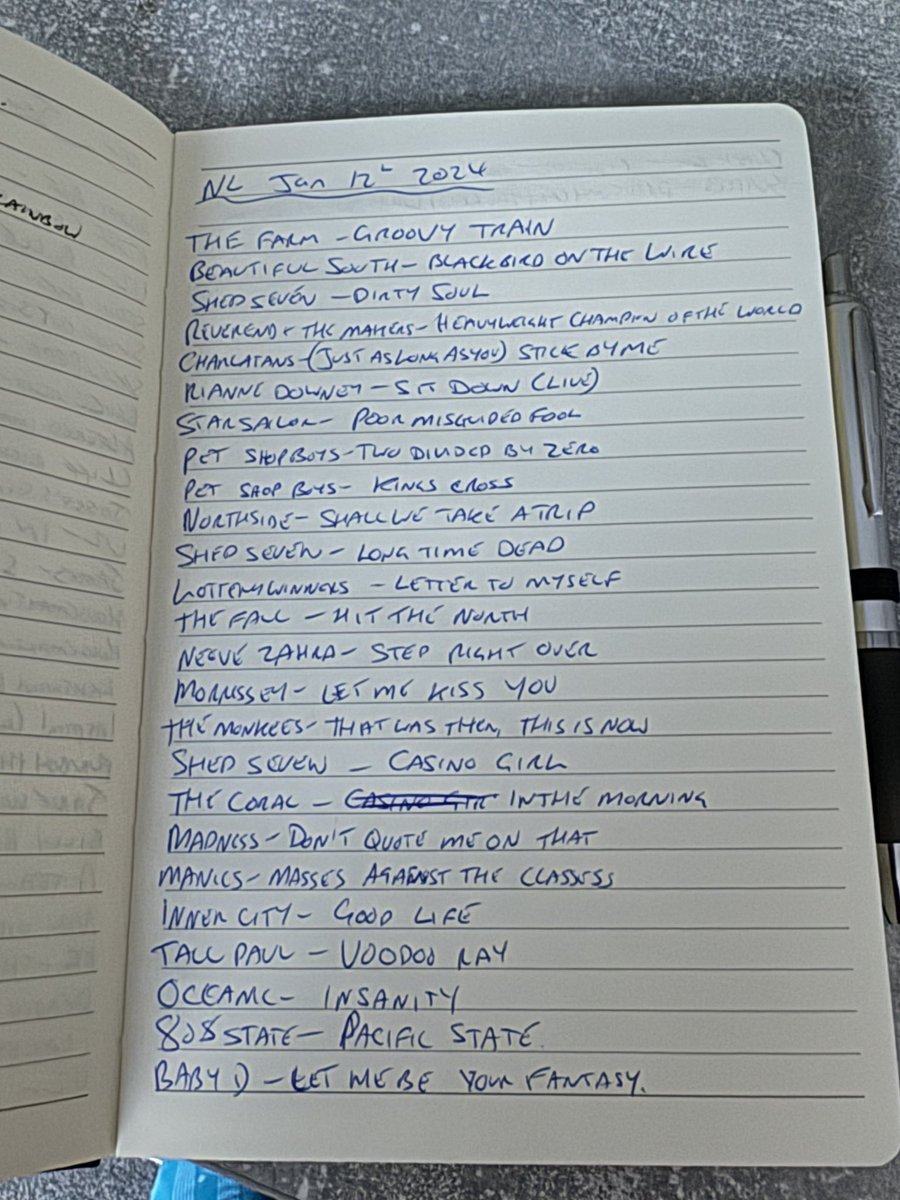 RAINBOW
NL Jan 12th 2024
THE FARM - GROOVY TRAIN
BEAUTIFUL SOUTH - BLACKBIRD ON THE WIRE
SHED SEVEN - DIRTY SOUL
REVEREND + THE MAKERS - HEAVYWEIGHT CHAMPION OF THE WORLD
CHARLATANS - (JUST AS LONG AS YOU) STICK BY ME
RIANNE DOWNEY - SIT DOWN (LIVE)
STARSAILOR - POOR MISGUIDED FOOL
PET SHOP BOYS - TWO DIVIDED BY ZERO
PET SHOP BOYS - KINGS CROSS
NORTHSIDE - SHALL WE TAKE A TRIP
SHED SEVEN - LONG TIME DEAD
LOTTERY WINNERS - LETTER TO MYSELF
THE FALL - HIT THE NORTH
NEEVE ZAHRA - STEP RIGHT OVER
MORRISSEY - LET ME KISS YOU
THE MONKEES - THAT WAS THEN, THIS IS NOW
SHED SEVEN - CASINO GIRL
THE CORAL - IN THE MORNING
MADNESS - DON'T QUOTE ME ON THAT
MANICS - MASSES AGAINST THE CLASSES
INNER CITY - GOOD LIFE
TALL PAUL - VOODOO RAY
OCEANIC - INSANITY
808 STATE - PACIFIC STATE.
BABY D - LET ME BE YOUR FANTASY.